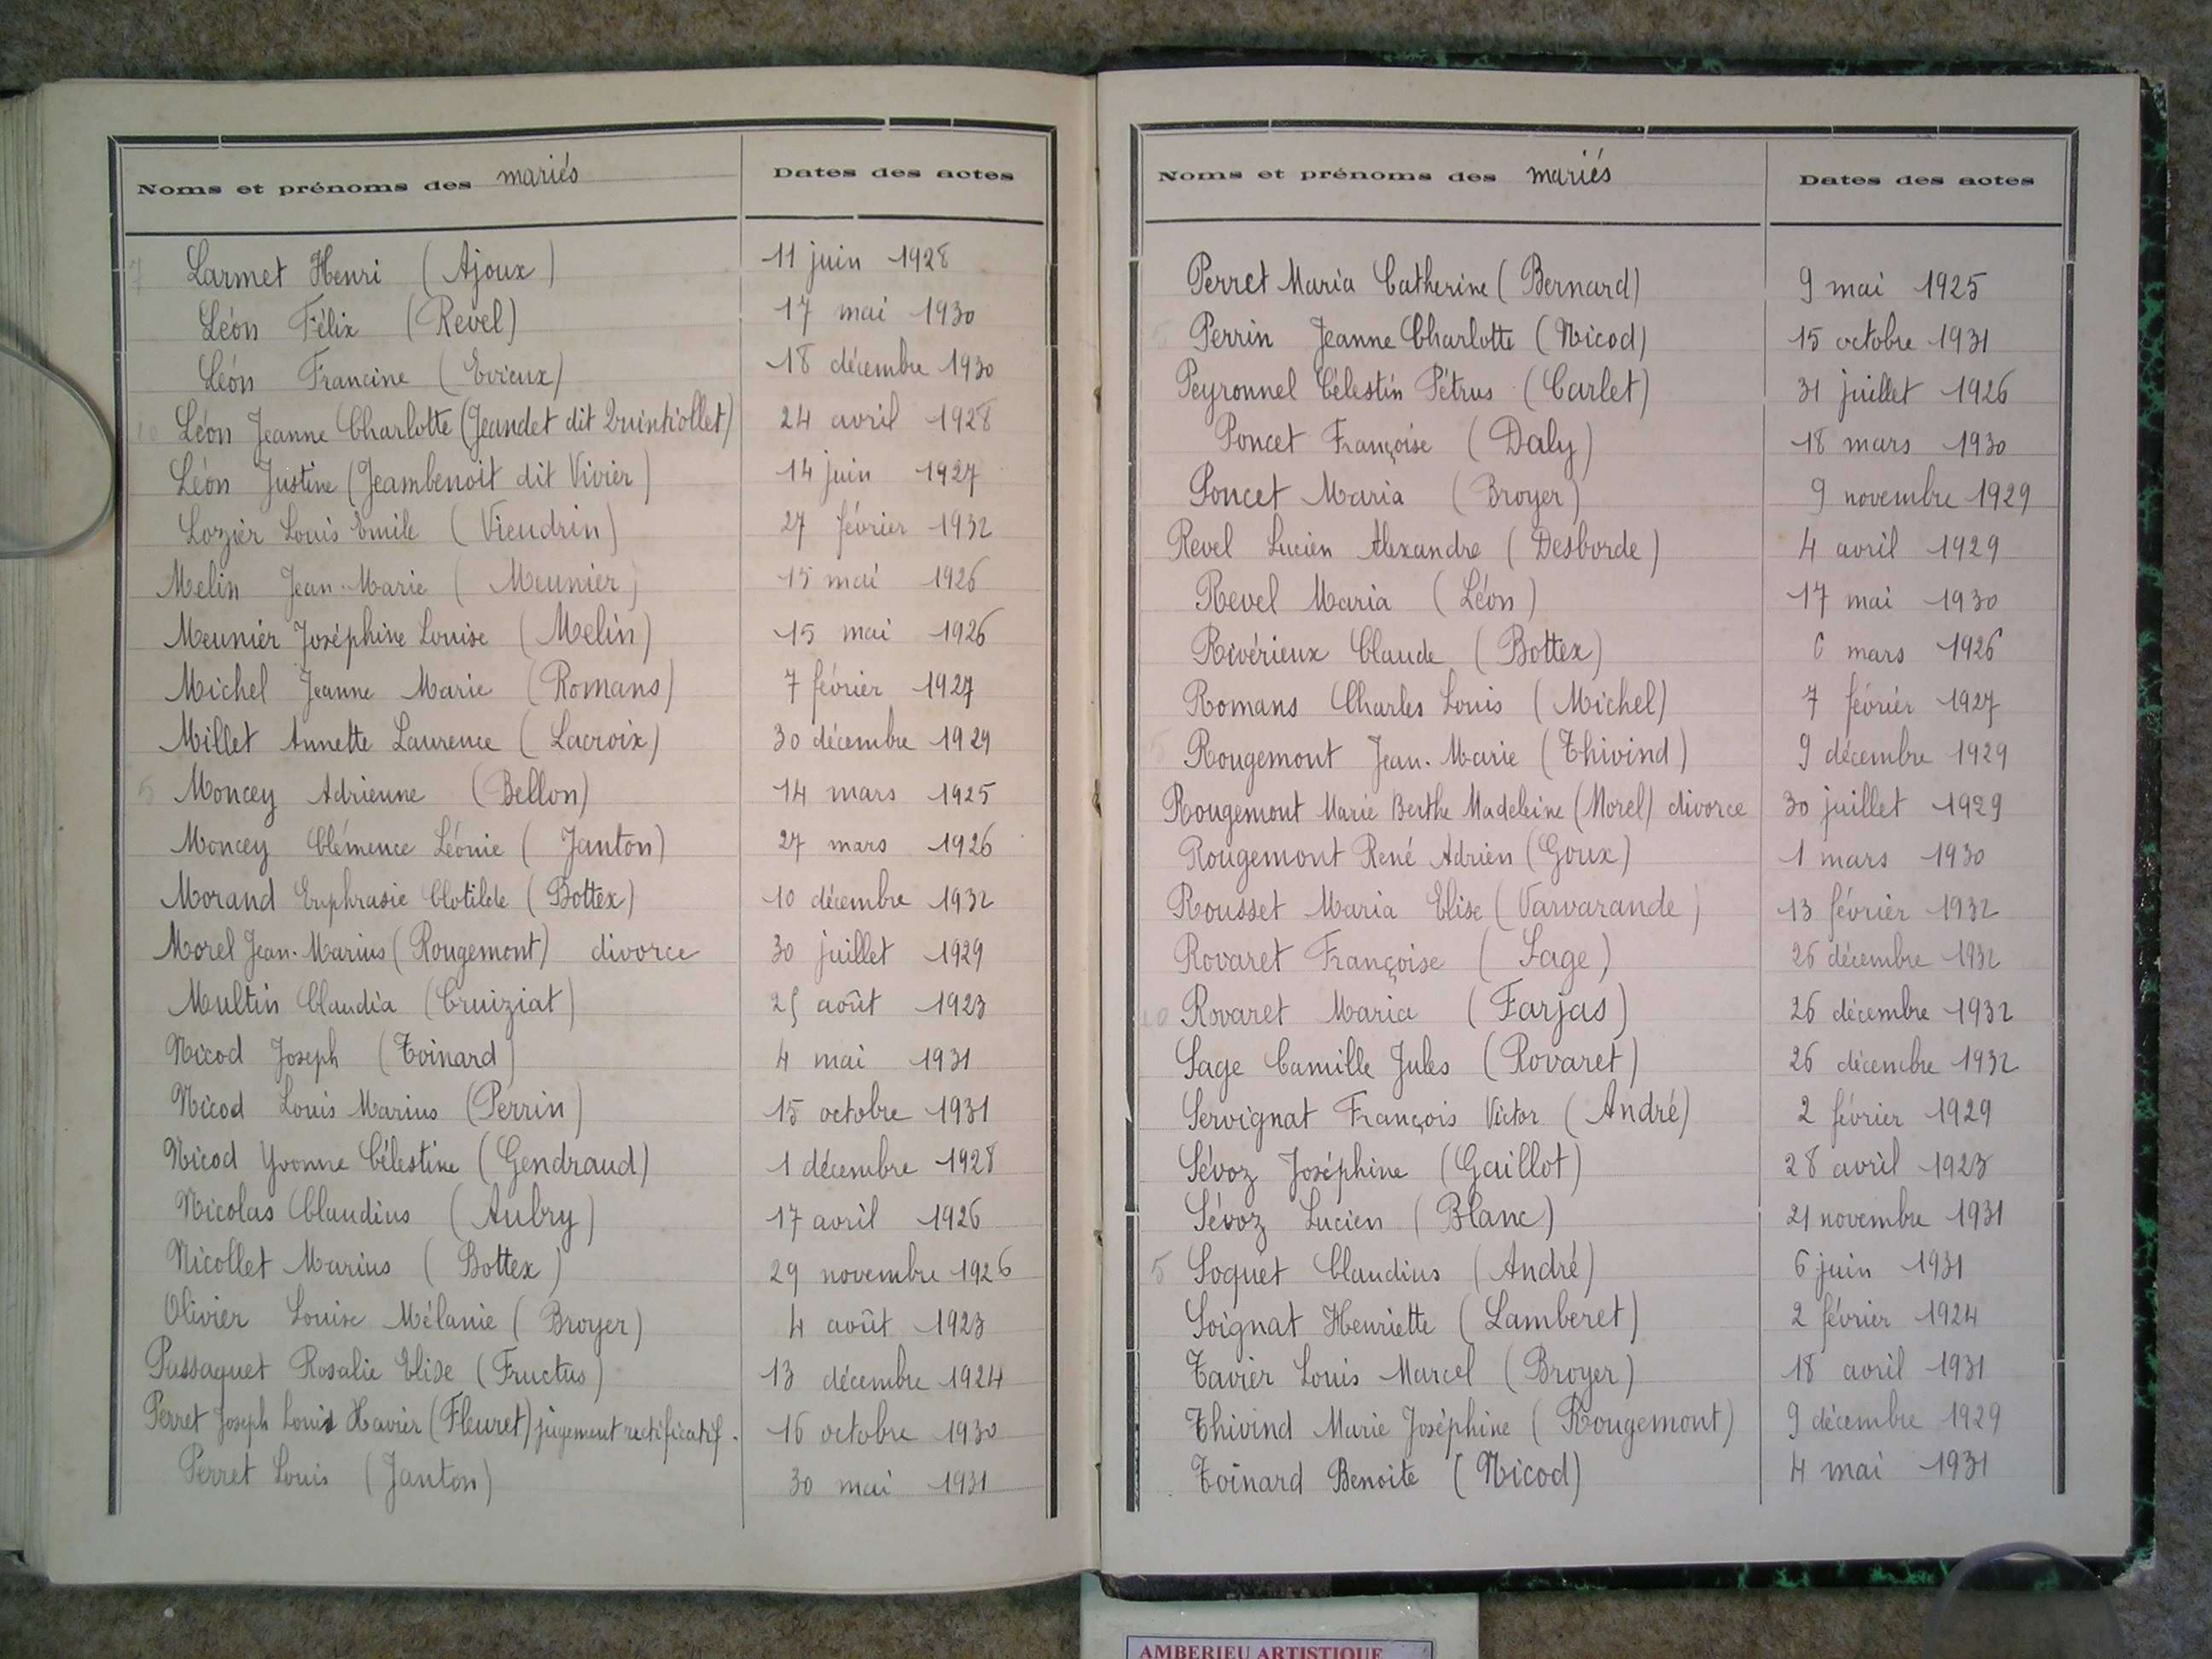 Noms et prénoms des mariés Dates des actes
7 Larmet Henri (Ajoux) 11 juin 1928
Léon Félix (Revel) 17 mai 1930
Léon Francine (Evieux) 18 décembre 1930
10 Léon Jeanne Charlotte (Jeandet dit Quintiollet) 24 avril 1928
Léon Justine (Jeambenoit dit Vivier) 14 juin 1927
Lozier Louis Emile (Vieudrin) 27 février 1932
Melin Jean-Marie (Meunier) 15 mai 1926
Meunier Joséphine Louise (Melin) 15 mai 1926
Michel Jeanne Marie (Romans) 7 février 1927
Millet Annette Laurence (Lacroix) 30 décembre 1929
5 Moncey Adrienne (Bellon) 14 mars 1925
Moncey Clémence Léonie (Janton) 27 mars 1926
Morand Euphrasie Clotilde (Bottex) 10 décembre 1932
Morel Jean-Marius (Rougemont) divorce 30 juillet 1929
Multin Claudia (Cruiziat) 25 août 1923
Nicod Joseph (Toinard) 4 mai 1931
Nicod Louis Marius (Perrin) 15 octobre 1931
Nicod Yvonne Célestine (Gendraud) 1 décembre 1928
Nicolas Claudius (Aubry) 17 avril 1926
Nicollet Marius (Bottex) 29 novembre 1926
Olivier Louise Mélanie (Broyer) 4 août 1923
Passaquet Rosalie Elise (Fructus) 13 décembre 1924
Perret Joseph Louis Xavier (Fleuret) jugement rectificatif. 16 octobre 1930
Perret Louis (Janton) 30 mai 1931
Noms et prénoms des mariés Dates des actes
Perret Maria Catherine (Bernard) 9 mai 1925
5 Perrin Jeanne Charlotte (Nicod) 15 octobre 1931
Peyronnel Célestin Pétrus (Carlet) 31 juillet 1926
Poncet Françoise (Daly) 18 mars 1930
Poncet Maria (Broyer) 9 novembre 1929
Revel Lucien Alexandre (Desborde) 4 avril 1929
Revel Maria (Léon) 17 mai 1930
Rivérieux Claude (Bottex) 6 mars 1926
Romans Charles Louis (Michel) 7 février 1927
5 Rougemont Jean-Marie (Thivind) 9 décembre 1929
Rougemont Marie Berthe Madeleine (Morel) divorce 30 juillet 1929
Rougemont René Adrien (Goux) 1 mars 1930
Rousset Maria Elise (Varvarande) 13 février 1932
Rovaret Françoise (Sage) 26 décembre 1932
10 Rovaret Maria (Farjas) 26 décembre 1932
Sage Camille Jules (Rovaret) 26 décembre 1932
Servignat François Victor (André) 2 février 1929
Sévoz Joséphine (Gaillot) 28 avril 1923
Sévoz Lucien (Blanc) 21 novembre 1931
5 Soquet Claudius (André) 6 juin 1931
Soignat Henriette (Lamberet) 2 février 1924
Tavier Louis Marcel (Broyer) 18 avril 1931
Thivind Marie Joséphine (Rougemont) 9 décembre 1929
Toinard Benoite (Nicod) 4 mai 1931
AMBERIEU ARTISTIQUE